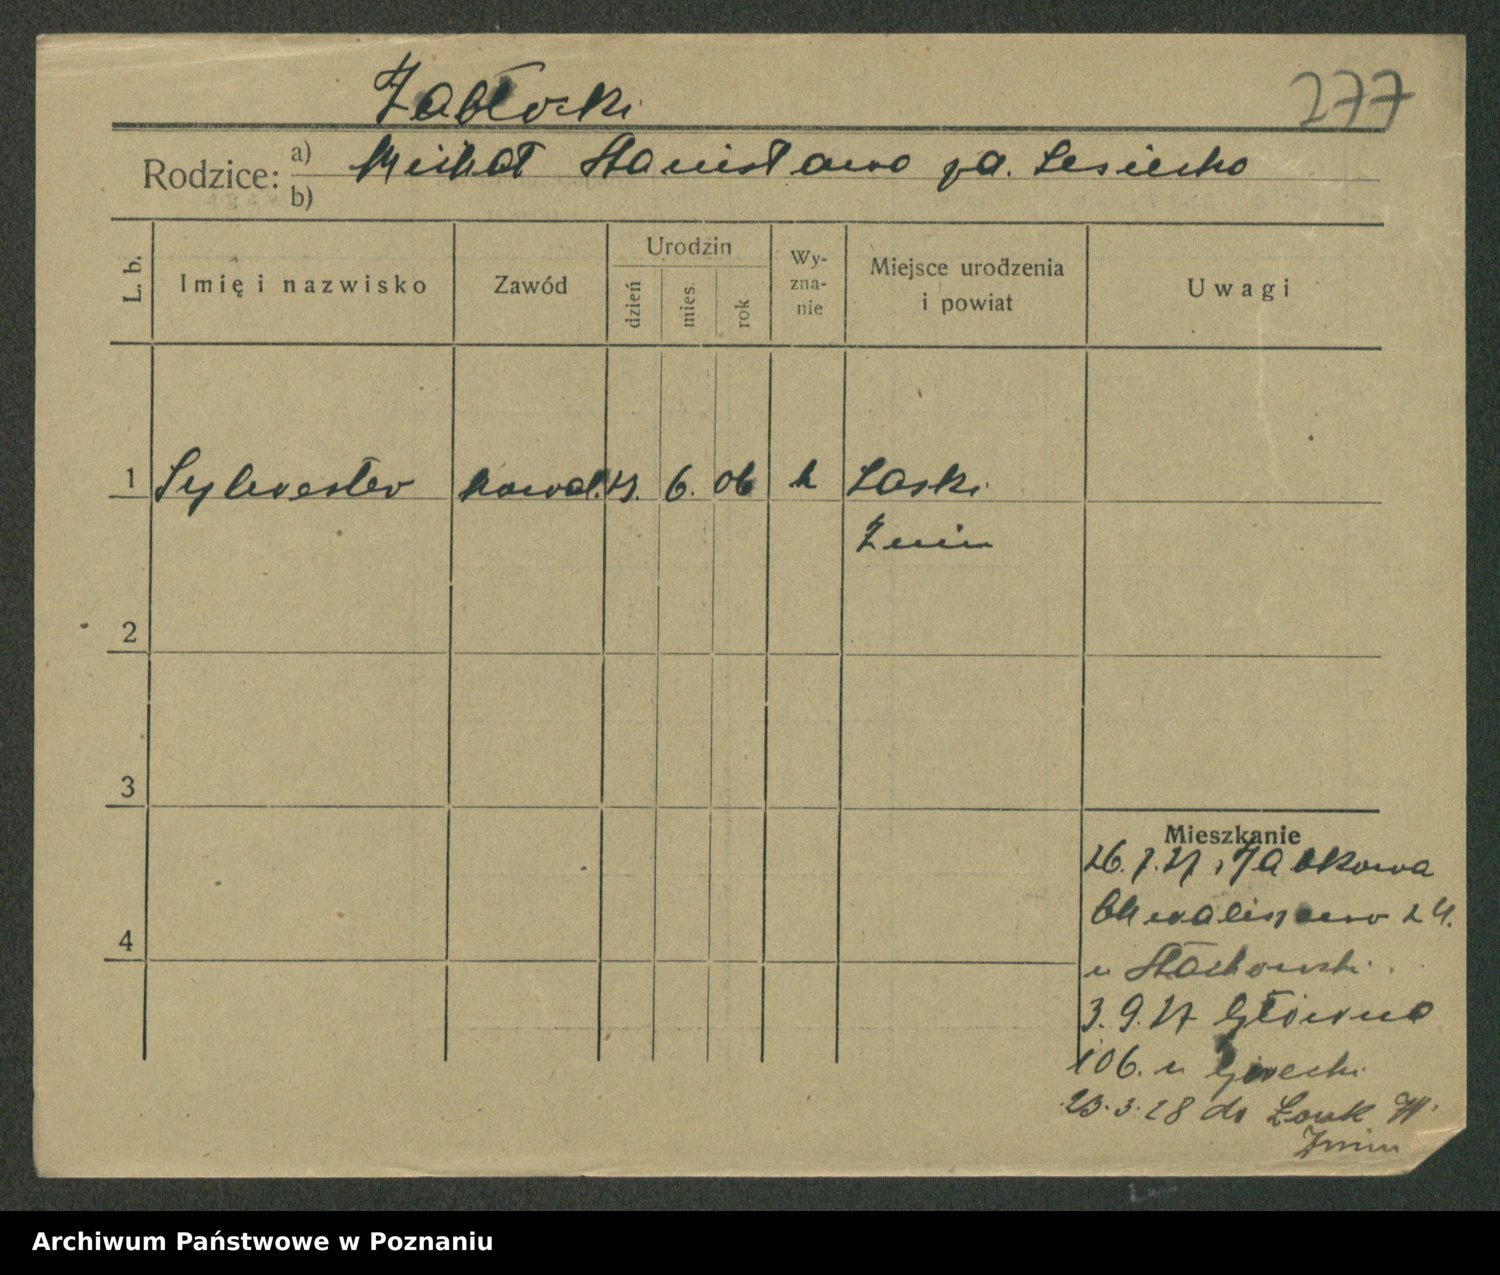 Zabłocki
277
Rodzice: a) Michał Stanisława za. Lesiecka
b)
L. b.
Imię i nazwisko
Zawód
Urodzin
dzień
mies.
rok
Wy-
zna-
nie
Miejsce urodzenia
i powiat
Uwagi
1 Sylwester kowal. 6. 06 k Laski
Żnin
2
3
4
Mieszkanie
26.7.27
24.
u Stachowski.
3.9.27 Główna
106. u Górecki
23.3.28 do W.
Żnin
Archiwum Państwowe w Poznaniu